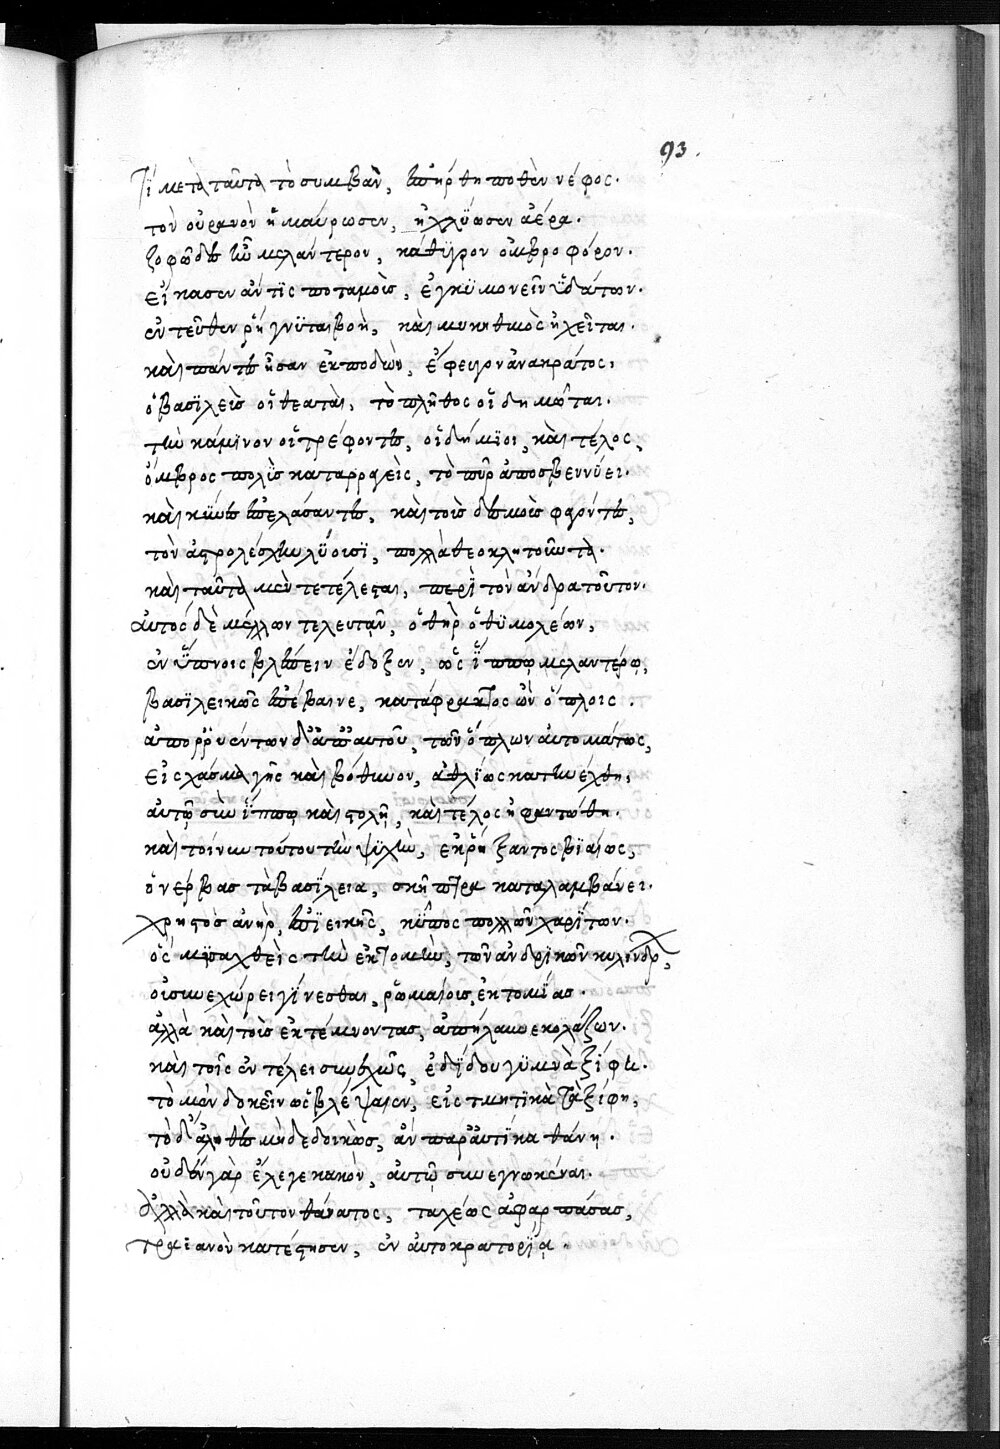 93.
Τί μετὰ ταῦτα τὸ συμβὰν, ἐπήρθη ποθὲν νέφος.
τὸν οὐρανὸν ἠμαύρωσεν, ἠχλΰωσεν ἀέρα.
ζοφῶδες ἦν μελάντερον, κάθϋγρον ὀμβροφόρον.
εἴκασεν ἄν τϊς ποταμοῖς, ἐγκϋμονεῖν ὑδάτων.
ἐντεῦθεν ῥήγνϋται βοὴ, καὶ μυκηθμὸς ἠχεῖται.
καὶ πάντες ἦσαν ἐκποδὼν, ἔφευγον ἀνακράτος,
ὁ βασϊλεὺς οἱ θεαταὶ, τὸ πλῆθος οἱ δημῶται.
τὴν κάμϊνον οἱ τρέφοντες, οἱ δήμϊοι, καὶ τέλος,
ὄμβρος πολὺς καταρραγεὶς, τὸ πῦρ ἀποσβεννύει.
καὶ κΰνες ἐπελάσαντες, καὶ τοὺς δεσμοὺς φαγόντες,
τὸν ἀστρολέσχην λΰουσϊ, πολλὰ θεοκλητοῦντα.
καὶ ταῦτα μὲν τετέλεσται, περὶ τὸν ἄνδρα τοῦτον.
αὐτὸς δὲ μέλλων τελευτᾶν, ὁ θὴρ ὁ θϋμολέων,
ἐν ὕπνοις βλέπειν ἔδοξεν, ὡς ἵππῳ μελαντέρῳ,
βασϊλεικῶς ἐπέβαινε, κατάφρακτος ὢν ὅπλοις.
ἀπορρϋέντων δ' ἀπ' αὐτοῦ, τῶν ὅπλων αὐτομάτως,
εἰς χάσμα γῆς καὶ βόθυνον, ἀθλίως κατηνέχθη,
αὐτῷ σὺν ἵππῳ καὶ στολῇ, καὶ τέλος ἠφαντώθη.
καὶ τοίνυν τούτου τὴν ψϋχὴν, ἐκρήξαντος βϊαίως,
ὁ νέρβας τὰ βασϊλεια, σκῆπτρα καταλαμβάνει.
χρηστὸς ἀνὴρ, ἐπϊεικὴς, κῆπος πολλῶν χαρΐτων.
ὃς μϋσαχθεὶς τὴν ἐκτομὴν, τῶν ἀνδρϊκῶν κυλίνδρων,
οὐ συνεχώρει γίνεσθαι, ῥωμαίοις ἐκτομΐας.
ἀλλὰ καὶ τοὺς ἐκτέμνοντας, ἀπήλαυνε κολάζων.
καὶ τοῖς ἐν τέλει συνεχῶς, ἐδΐδου γϋμνὰ ξίφη.
τὸ μὲν δοκεῖν ὡς βλέψαιεν, εἰς τμητϊκὰ τὰ ξίφη,
τὸ δ' ἀληθὲς μὴ δεδοικὼς, ἂν παραυτΐκα θάνῃ.
οὐδὲν γὰρ ἔλεγε κακὸν, αὐτῷ συνεγνωκέναι.
ἀλλὰ καὶ τοῦτον θάνατος, ταχέως ἀφαρπάσας,
τραϊανὸν κατέστησεν, ἐν αὐτοκρατορΐᾳ.